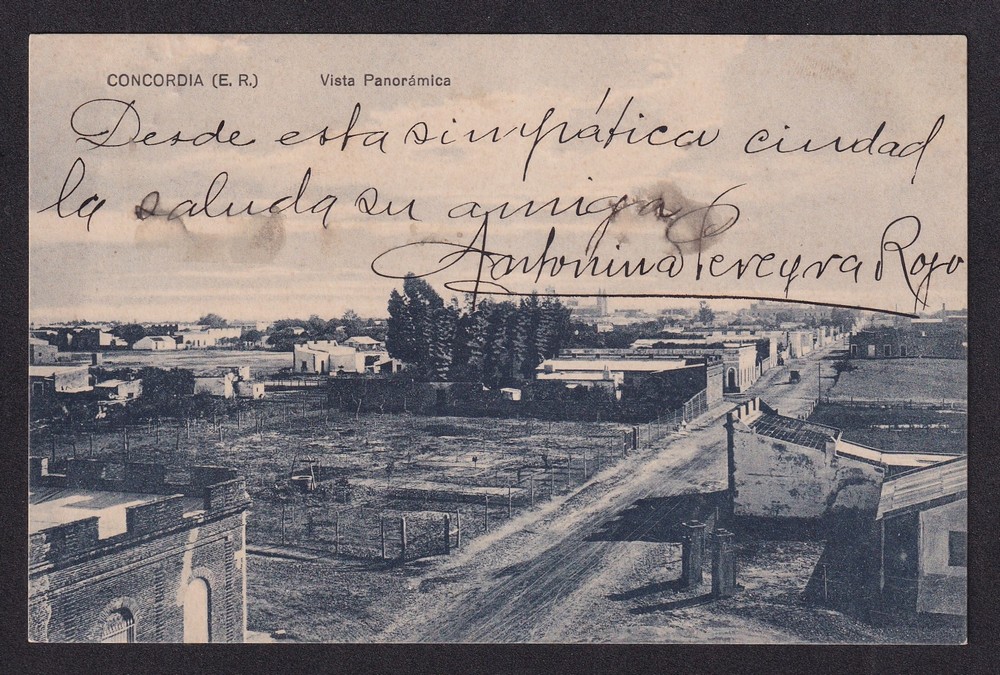 CONCORDIA (E. R.) Vista Panorámica
Desde esta simpática ciudad
la saluda su amiga
Antonina Pereyra Rojo